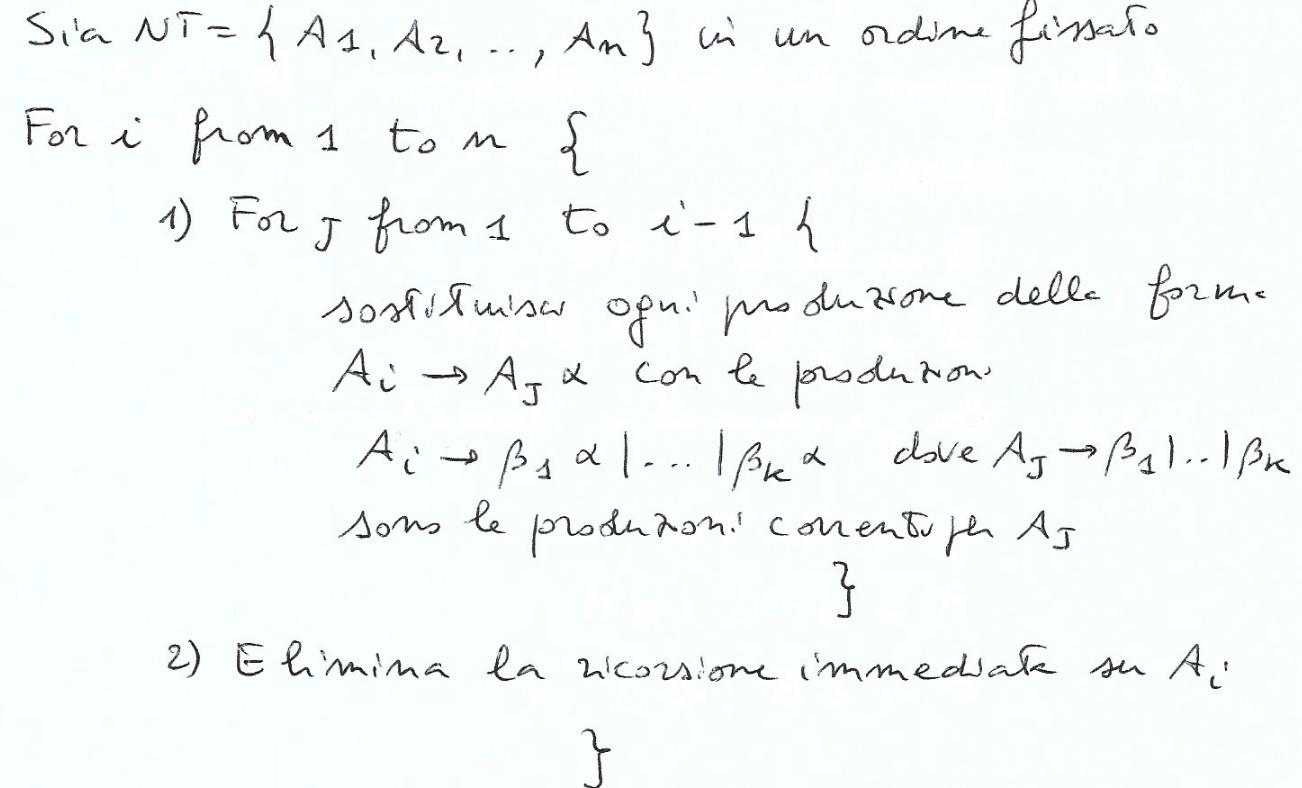 Sia NT = { A1, A2, .., An } in un ordine fissato
For i from 1 to n {
1) For J from 1 to i-1 {
sostituisci ogni produzione della forma
Ai → AJ α con le produzioni
Ai → β1 α | ... | βk α dove AJ → β1 | .. | βk
sono le produzioni correnti per AJ
}
2) Elimina la ricorsione immediata su Ai
}